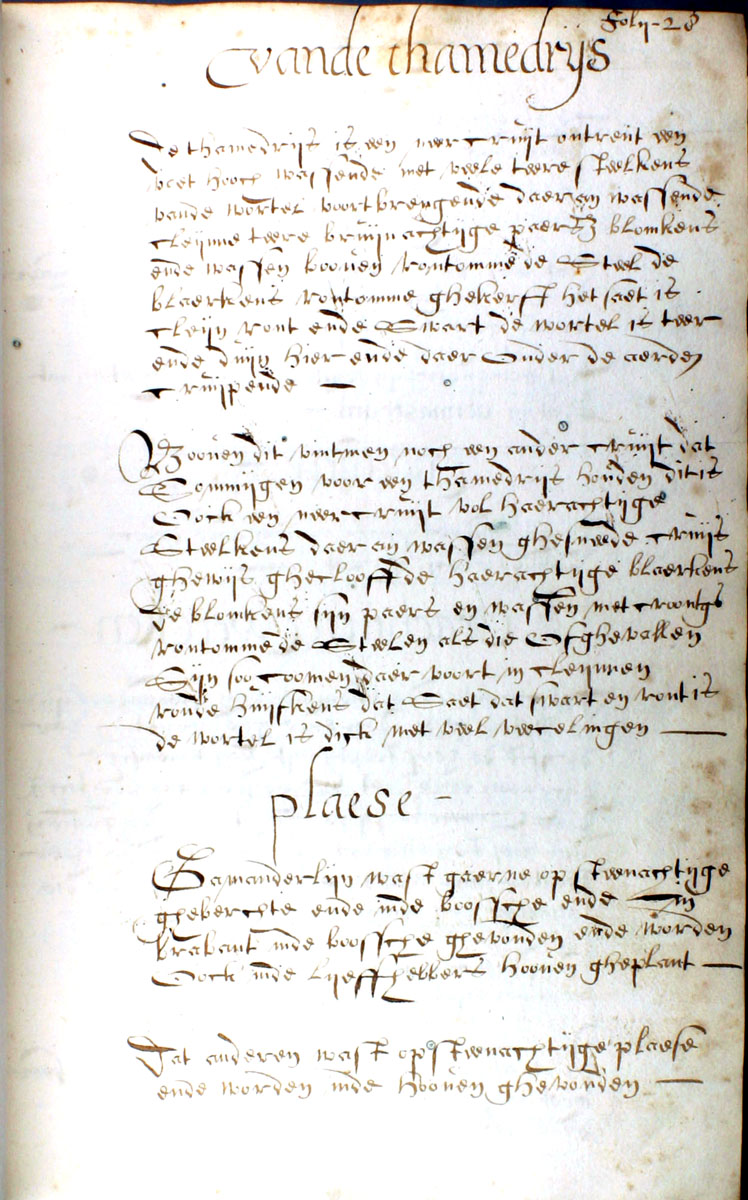 Folij - 28
vande thamedrijs
De thamedrijs is een neer cruijt ontrent een
voet hooch wassende met veele teere steelkens
vande wortel voortbrengende daer an wassende
cleijnne teere bruijnachtijge paersz blomkens
ende wassen booven rontomme de steel de
blaerkens rontomme ghekerft het saet is
cleijn ront ende swart de wortel is teer
ende duijn hier ende daer onder de aerden
cruijpende —
Booven dit vintmen noch een ander cruijt dat
sommijgen voor een thamedrijs houden dit is
oock een neer cruijt vol haerachtijge
steelkens daer an wassen ghesnede cruijs
ghewijs ghecloofde haerachtijge blaerkens
de blomkens sijn paers en wassen met croontgs
rontomme de steelen als die ofghevallen
sijn soo coomen daer voort in cleijnnen
ronde huijskens dat saet dat swart en ront is
de wortel is dick met veel veecelingen —
plaese -
Gamanderlijn wast gaerne op steenachtijge
gheberchte ende inde boossche ende in
brabant inde boossche ghevonden ende worden
oock inde lijeffhebbers hooven gheplant —
Dat anderen wast op steenachtijge plaese
ende worden inde hooven ghevonden —